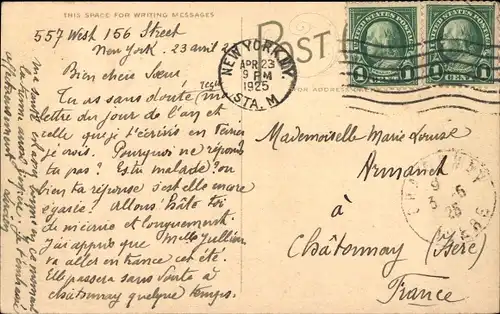 THIS SPACE FOR WRITING MESSAGES
557 West 156 Street
New York. 23 avril 2
Bien chère Sœur
Tu as sans doute reçu ma
lettre du jour de l'an et
celle que j'écrivis en
je crois. Pourquoi ne réponds
tu pas? Es tu malade? ou
bien ta réponse s'est elle encore
égarée? Allons! hâte toi
de m'écrire et longuement.
J'ai appris que Melle Jullien
va aller en France cet été.
Elle passera sans doute à
Châtonnay quelque temps.
ma santé est assez bonne en ce moment
affectueusement
POST
FOR ADDRESS
NEW YORK, N.Y.
APR 23
9 PM
1925
STA. M
UNITED STATES POSTAGE
1 CENT 1
UNITED STATES POSTAGE
1 CENT 1
Mademoiselle Marie Louise
Armanet
à
Châtonnay (Isère)
France
CHATONNAY
ISERE